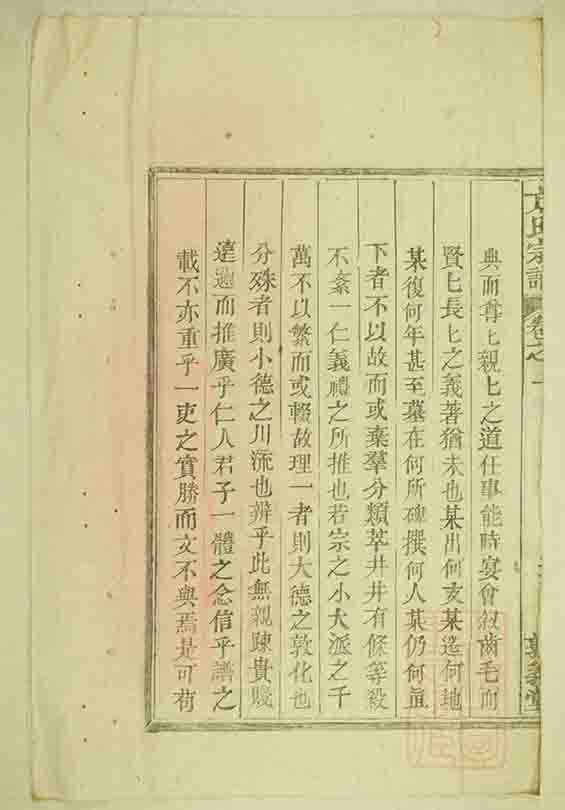 氏宗譜 卷之一
典而尊匕親匕之道仕事能時宴會叙齒毛而
賢匕長匕之義著猶未也某出何支某遷何地
某復何年甚至墓在何所碑撰何人某仍何
下者不以故而或棄羣分類萃井井有條等殺
不紊一仁義禮之所推也若宗之小大派之千
萬不以繁而或輟故理一者則大德之敦化也
分殊者則小德之川流也辨乎此無親踈貴賤
遠邇而推廣乎仁人君子一體之念信乎譜之
載不亦重乎一吏之質勝而文不與焉是可苟